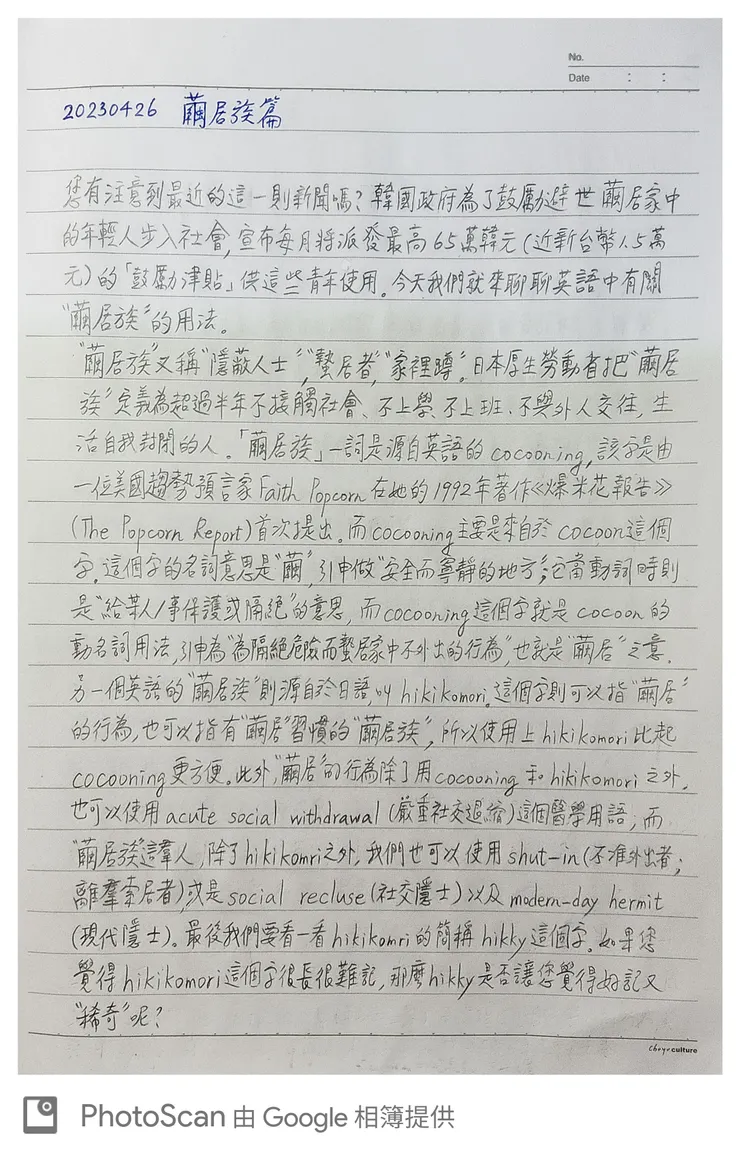 No.
Date : :
20230426 繭居族篇
您有注意到最近的這一則新聞嗎? 韓國政府為了鼓勵避世繭居家中
的年輕人步入社會, 宣布每月將派發最高65萬韓元(近新台幣1.5萬
元)的「鼓勵津貼」供這些青年使用。今天我們就來聊聊英語中有關
"繭居族"的用法。
"繭居族"又稱"隱蔽人士","蟄居者","家裡蹲"。日本厚生勞動省把"繭居
族"定義為超過半年不接觸社會、不上學、不上班、不與外人交往, 生
活自我封閉的人。「繭居族」一詞是源自英語的 cocooning, 該字是由
一位美國趨勢預言家 Faith Popcorn 在她的1992年著作《爆米花報告》
(The Popcorn Report)首次提出。而cocooning主要是來自於 cocoon這個
字。這個字的名詞意思是"繭", 引申做"安全而寧靜的地方"; 它當動詞時則
是"給某人/事保護或隔絕"的意思, 而cocooning這個字就是 cocoon 的
動名詞用法, 引申為"為隔絕危險而蟄居家中不外出的行為", 也就是"繭居"之意。
另一個英語的"繭居族"則源自於日語, 叫 hikikomori。這個字則可以指"繭居"
的行為, 也可以指有"繭居"習慣的"繭居族", 所以使用上 hikikomori 比起
cocooning 更方便。此外, "繭居"的行為除了用 cocooning 和 hikikomori 之外,
也可以使用 acute social withdrawal (嚴重社交退縮)這個醫學用語, 而
"繭居族"這羣人, 除了hikikomri之外, 我們也可以使用 shut-in (不准外出者;
離羣索居者), 或是 social recluse (社交隱士)以及 modern-day hermit
(現代隱士)。最後我們要看一看 hikikomri 的簡稱 hikky 這個字。如果您
覺得 hikikomori 這個字很長很難記, 那麼 hikky 是否讓您覺得好記又
"稀奇"呢?
culture
PhotoScan 由 Google 相簿提供